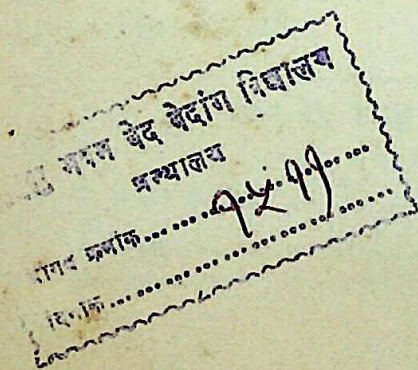 भवन वेद वेदांग विद्यालय
ग्रन्थालय
आगत क्रमांक......१५११......
दिनांक......